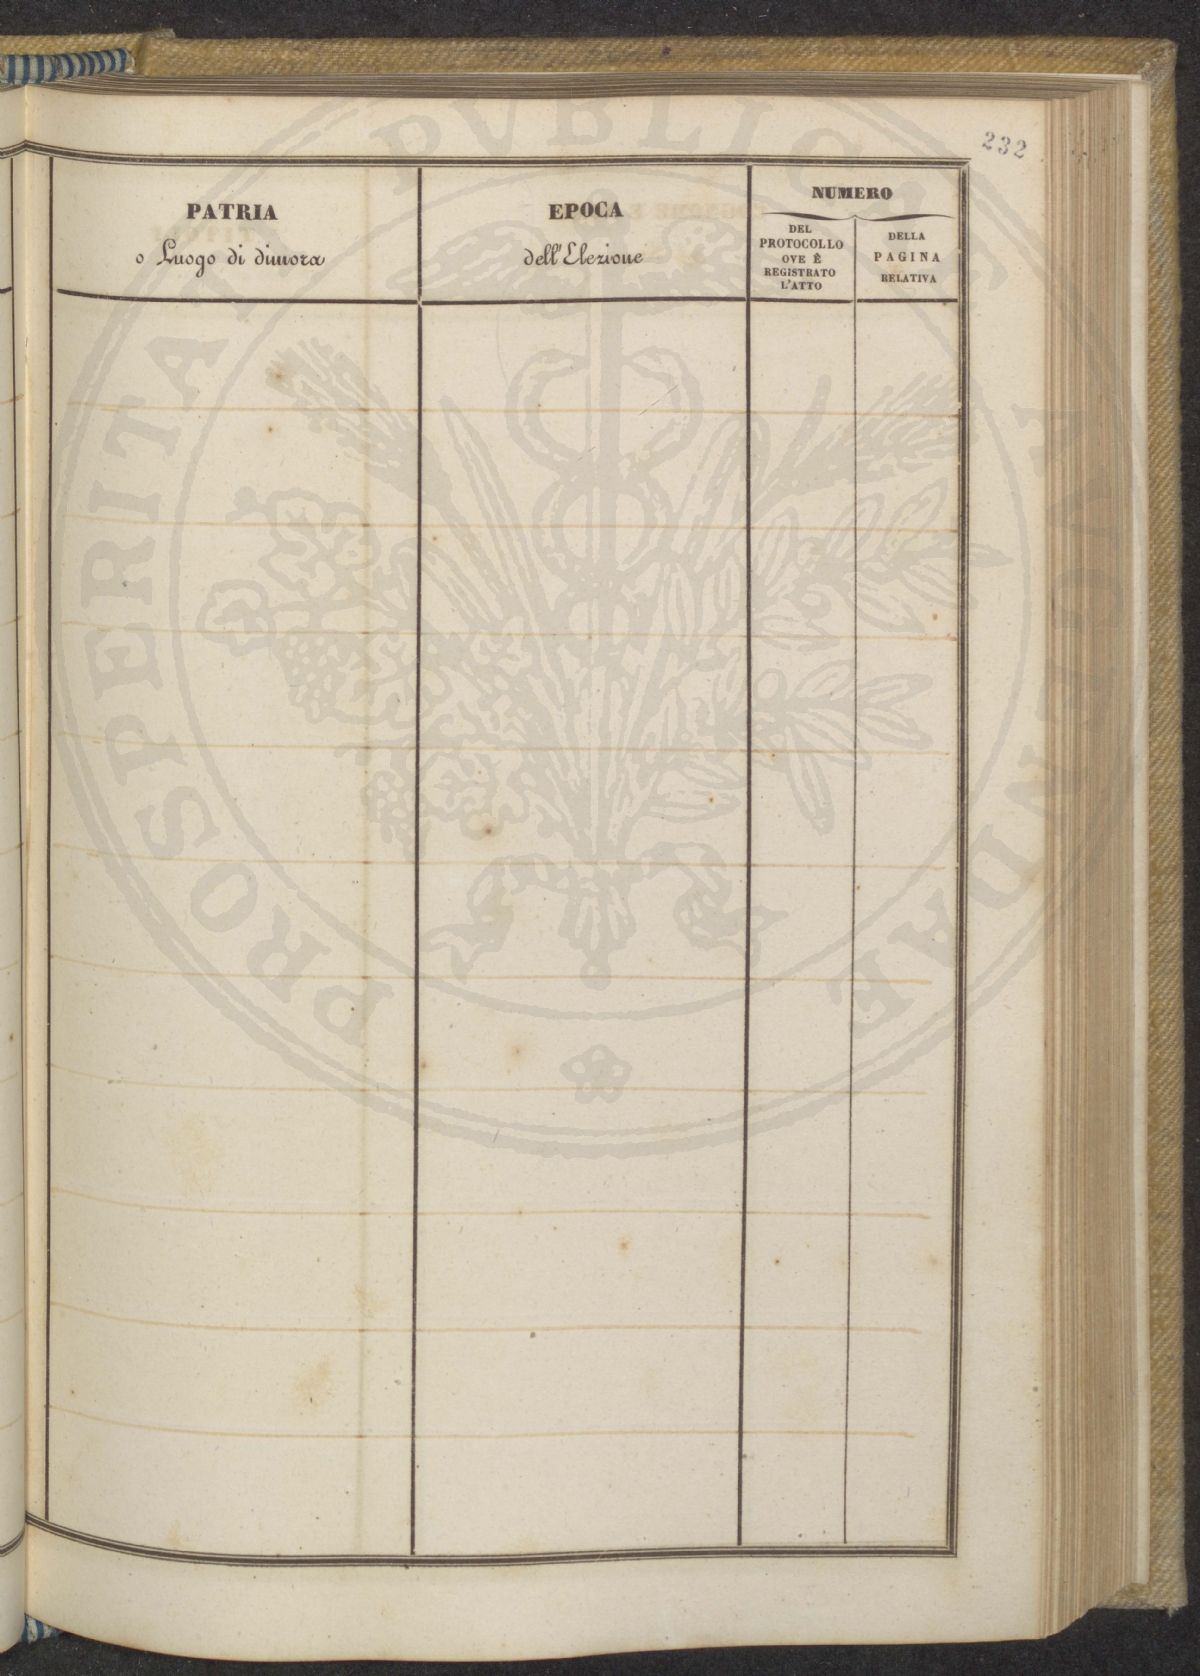 232
PATRIA
o Luogo di dimora
EPOCA
dell'Elezione
NUMERO
DEL
PROTOCOLLO
OVE È
REGISTRATO
L'ATTO
DELLA
PAGINA
RELATIVA
PROSPERITATI PVBLICAE AVGENDAE